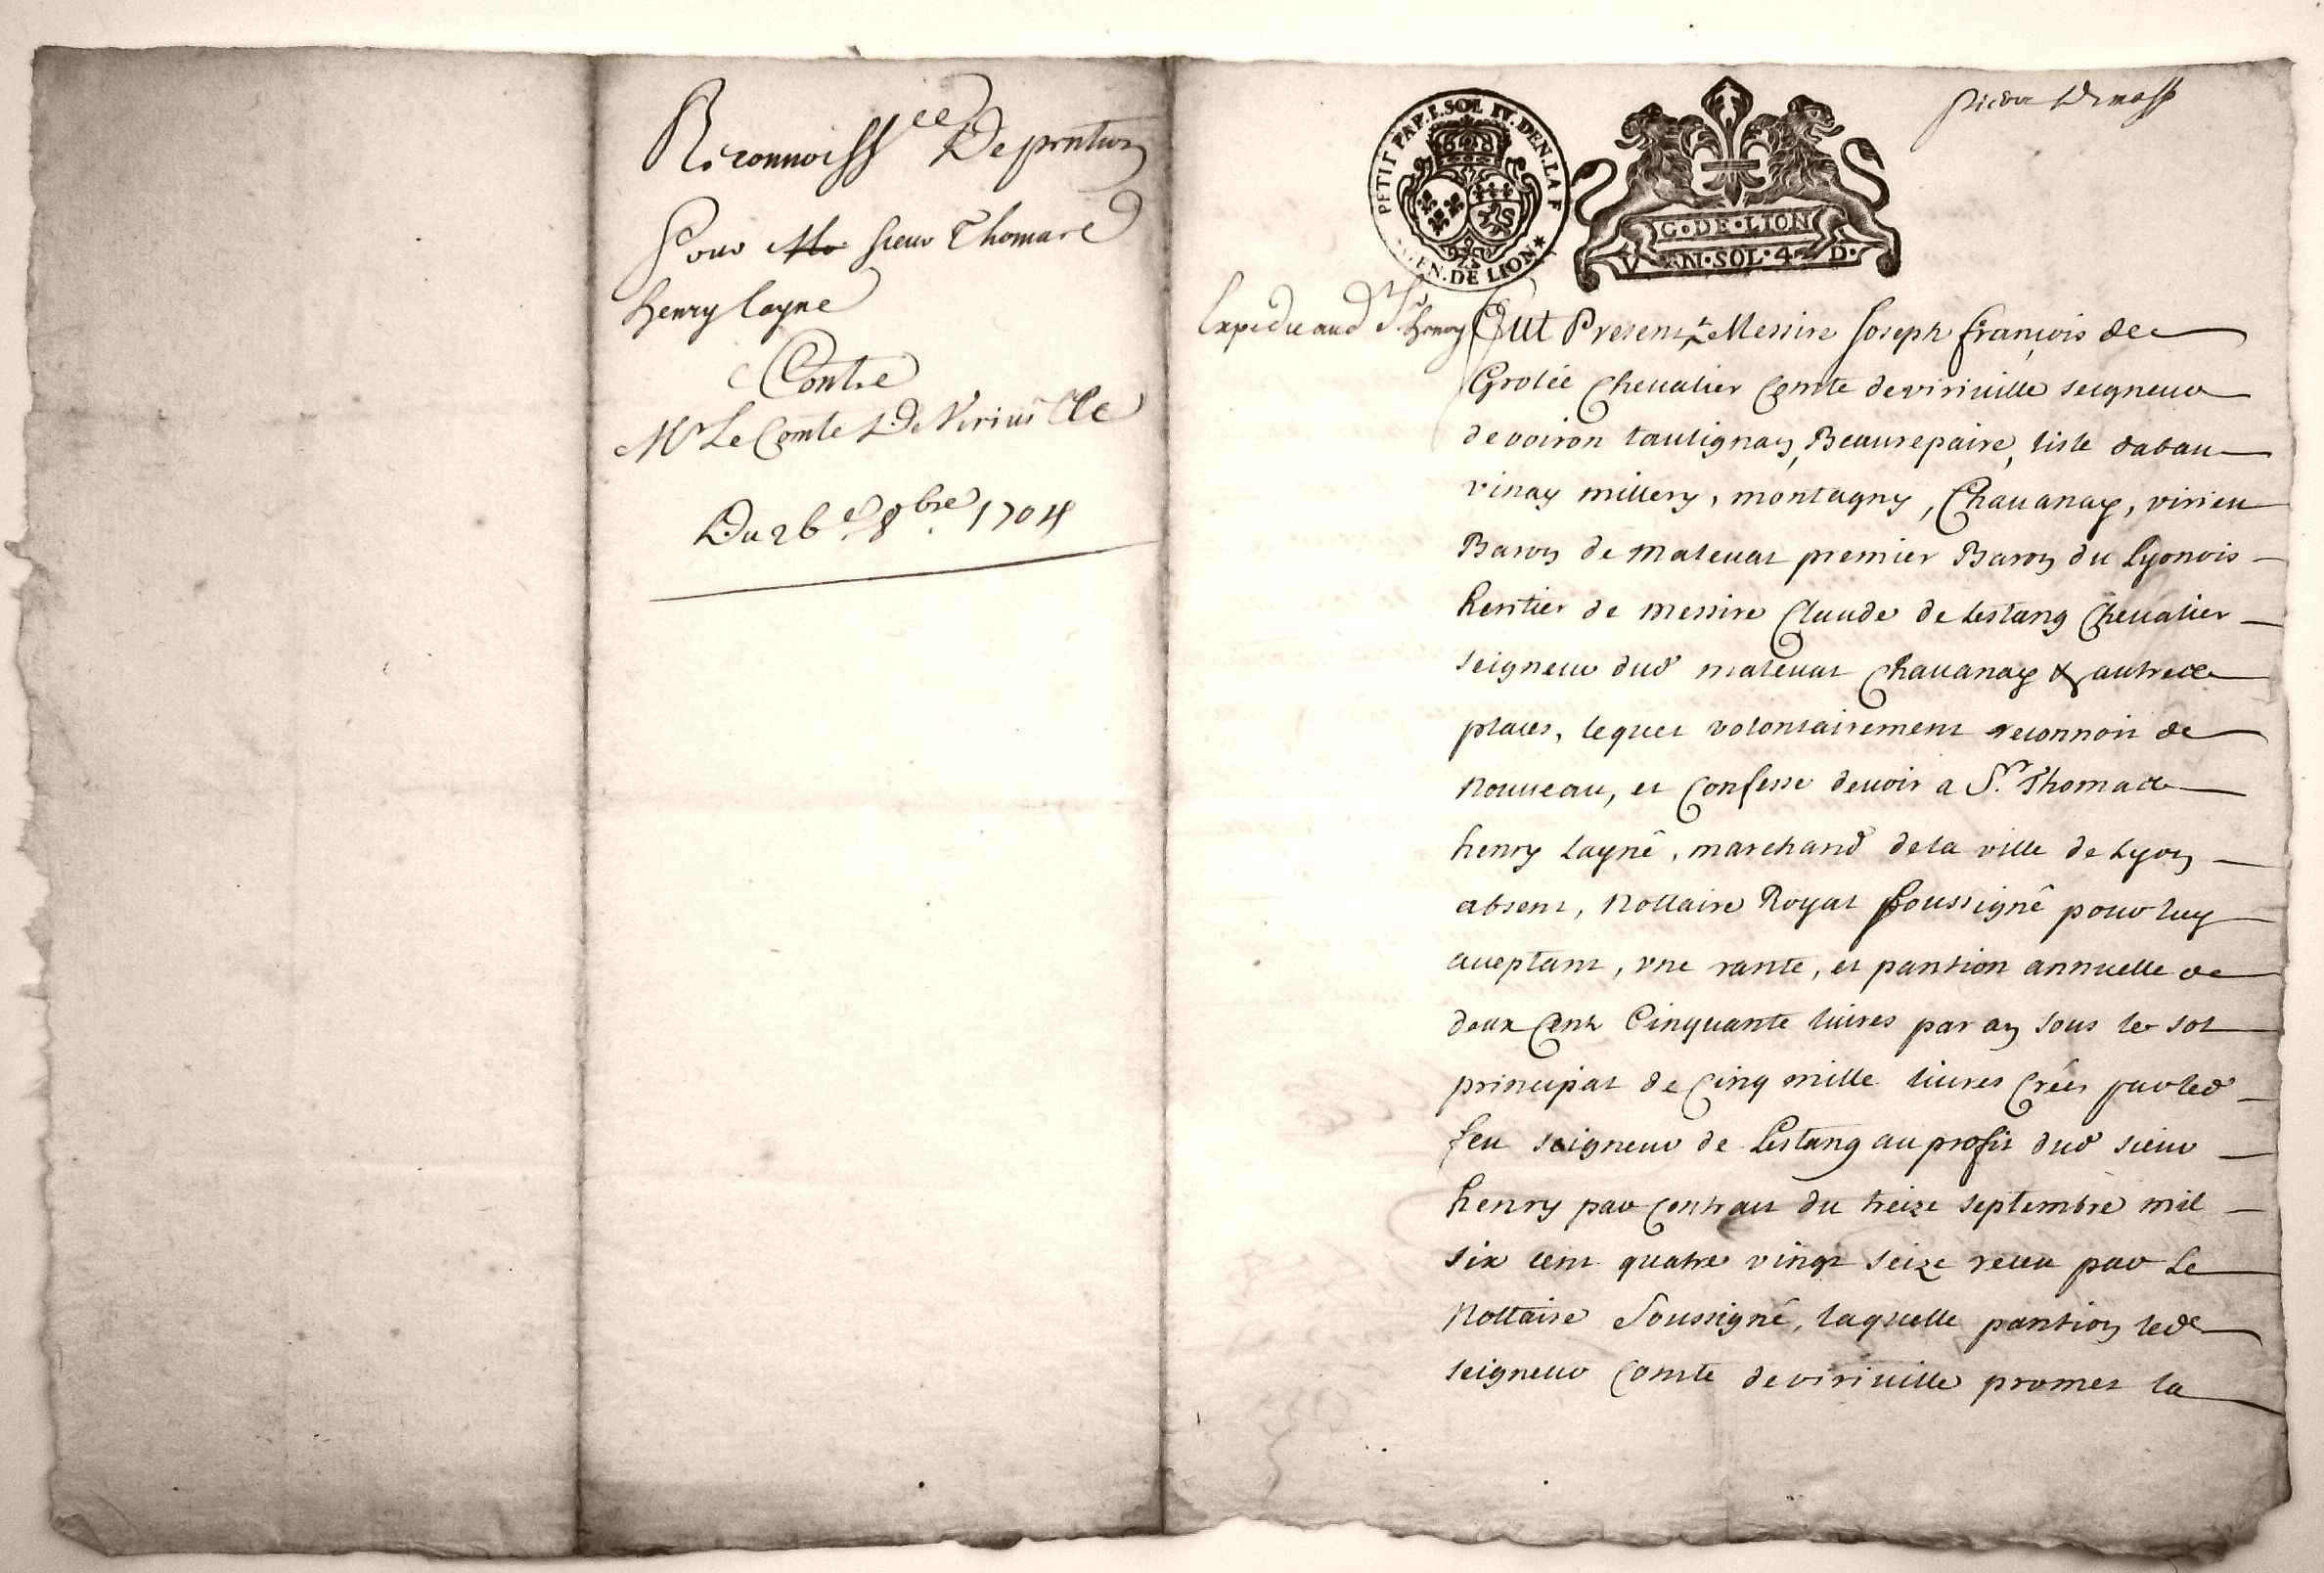 Reconnoiss.ce De pention
Pour Mr Sieur Thomas
henry layné
Contre
Mr Le Comte De Viriuille
Du 26e 8bre 1704
PETIT PAP. 1. SOL IV. DEN. LA F
EN. DE LION
G·DE·LION
VN·SOL·4·D·
Expedie aud Sr henry
Fut Present Messire Joseph françois de
Grolée Cheualier Comte de viriuille seigneur
de voiron taulignan, Beaurepaire, liste
vinay millery, montagny, Chauanay, virieu
Baron de maleual premier Baron du Lyonois
heritier de messire Claude de Lestang Cheualier
seigneur dud maleual Chauanay & autres
places, lequel volontairement reconnoit de
nouueau, et Confesse deuoir a Sr. Thomas
henry Layné, marchand de la ville de Lyon
absent, nottaire Royal soussigné pour luy
acceptant, vne rante, et pantion annuelle de
deux Cent Cinquante liures par an sous le sol
principal de Cinq mille liures Créés par led
feu seigneur de Lestang au profit dud sieur
henry par Contract du treize septembre mil
six cent quatre vingt seize receu par Le
Nottaire Soussigné, laquelle pantion led
seigneur Comte de viriuille promet la